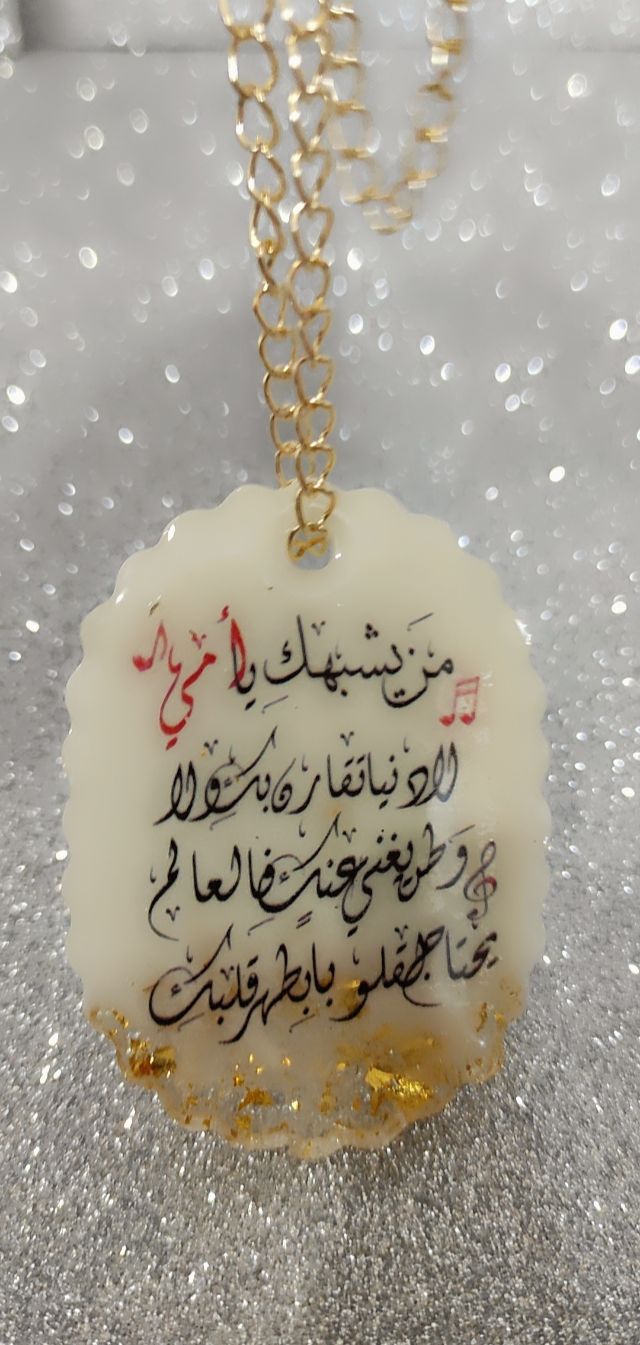 من يشبهك يا أمي
لا دنيا تقارن بك ولا
وطن يغني عنك فالعالم
يحتاج قلوبا بطهر قلبك